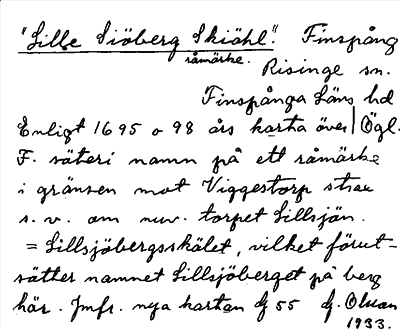 "Lille Siöberg Skiähl". Finspång
råmärke.
Risinge sn.
Finspånga Läns hd
Enligt 1695 o 98 års karta över Ögl.
F. säteri namn på ett råmärke
i gränsen mot Viggestorp strax
s. v. om nuv. torpet Lillsjön.
= Lillsjöbergsskälet, vilket förut-
sätter namnet Lillsjöberget på berg
här. Jmfr. nya kartan df 55 G. Olson
1933.